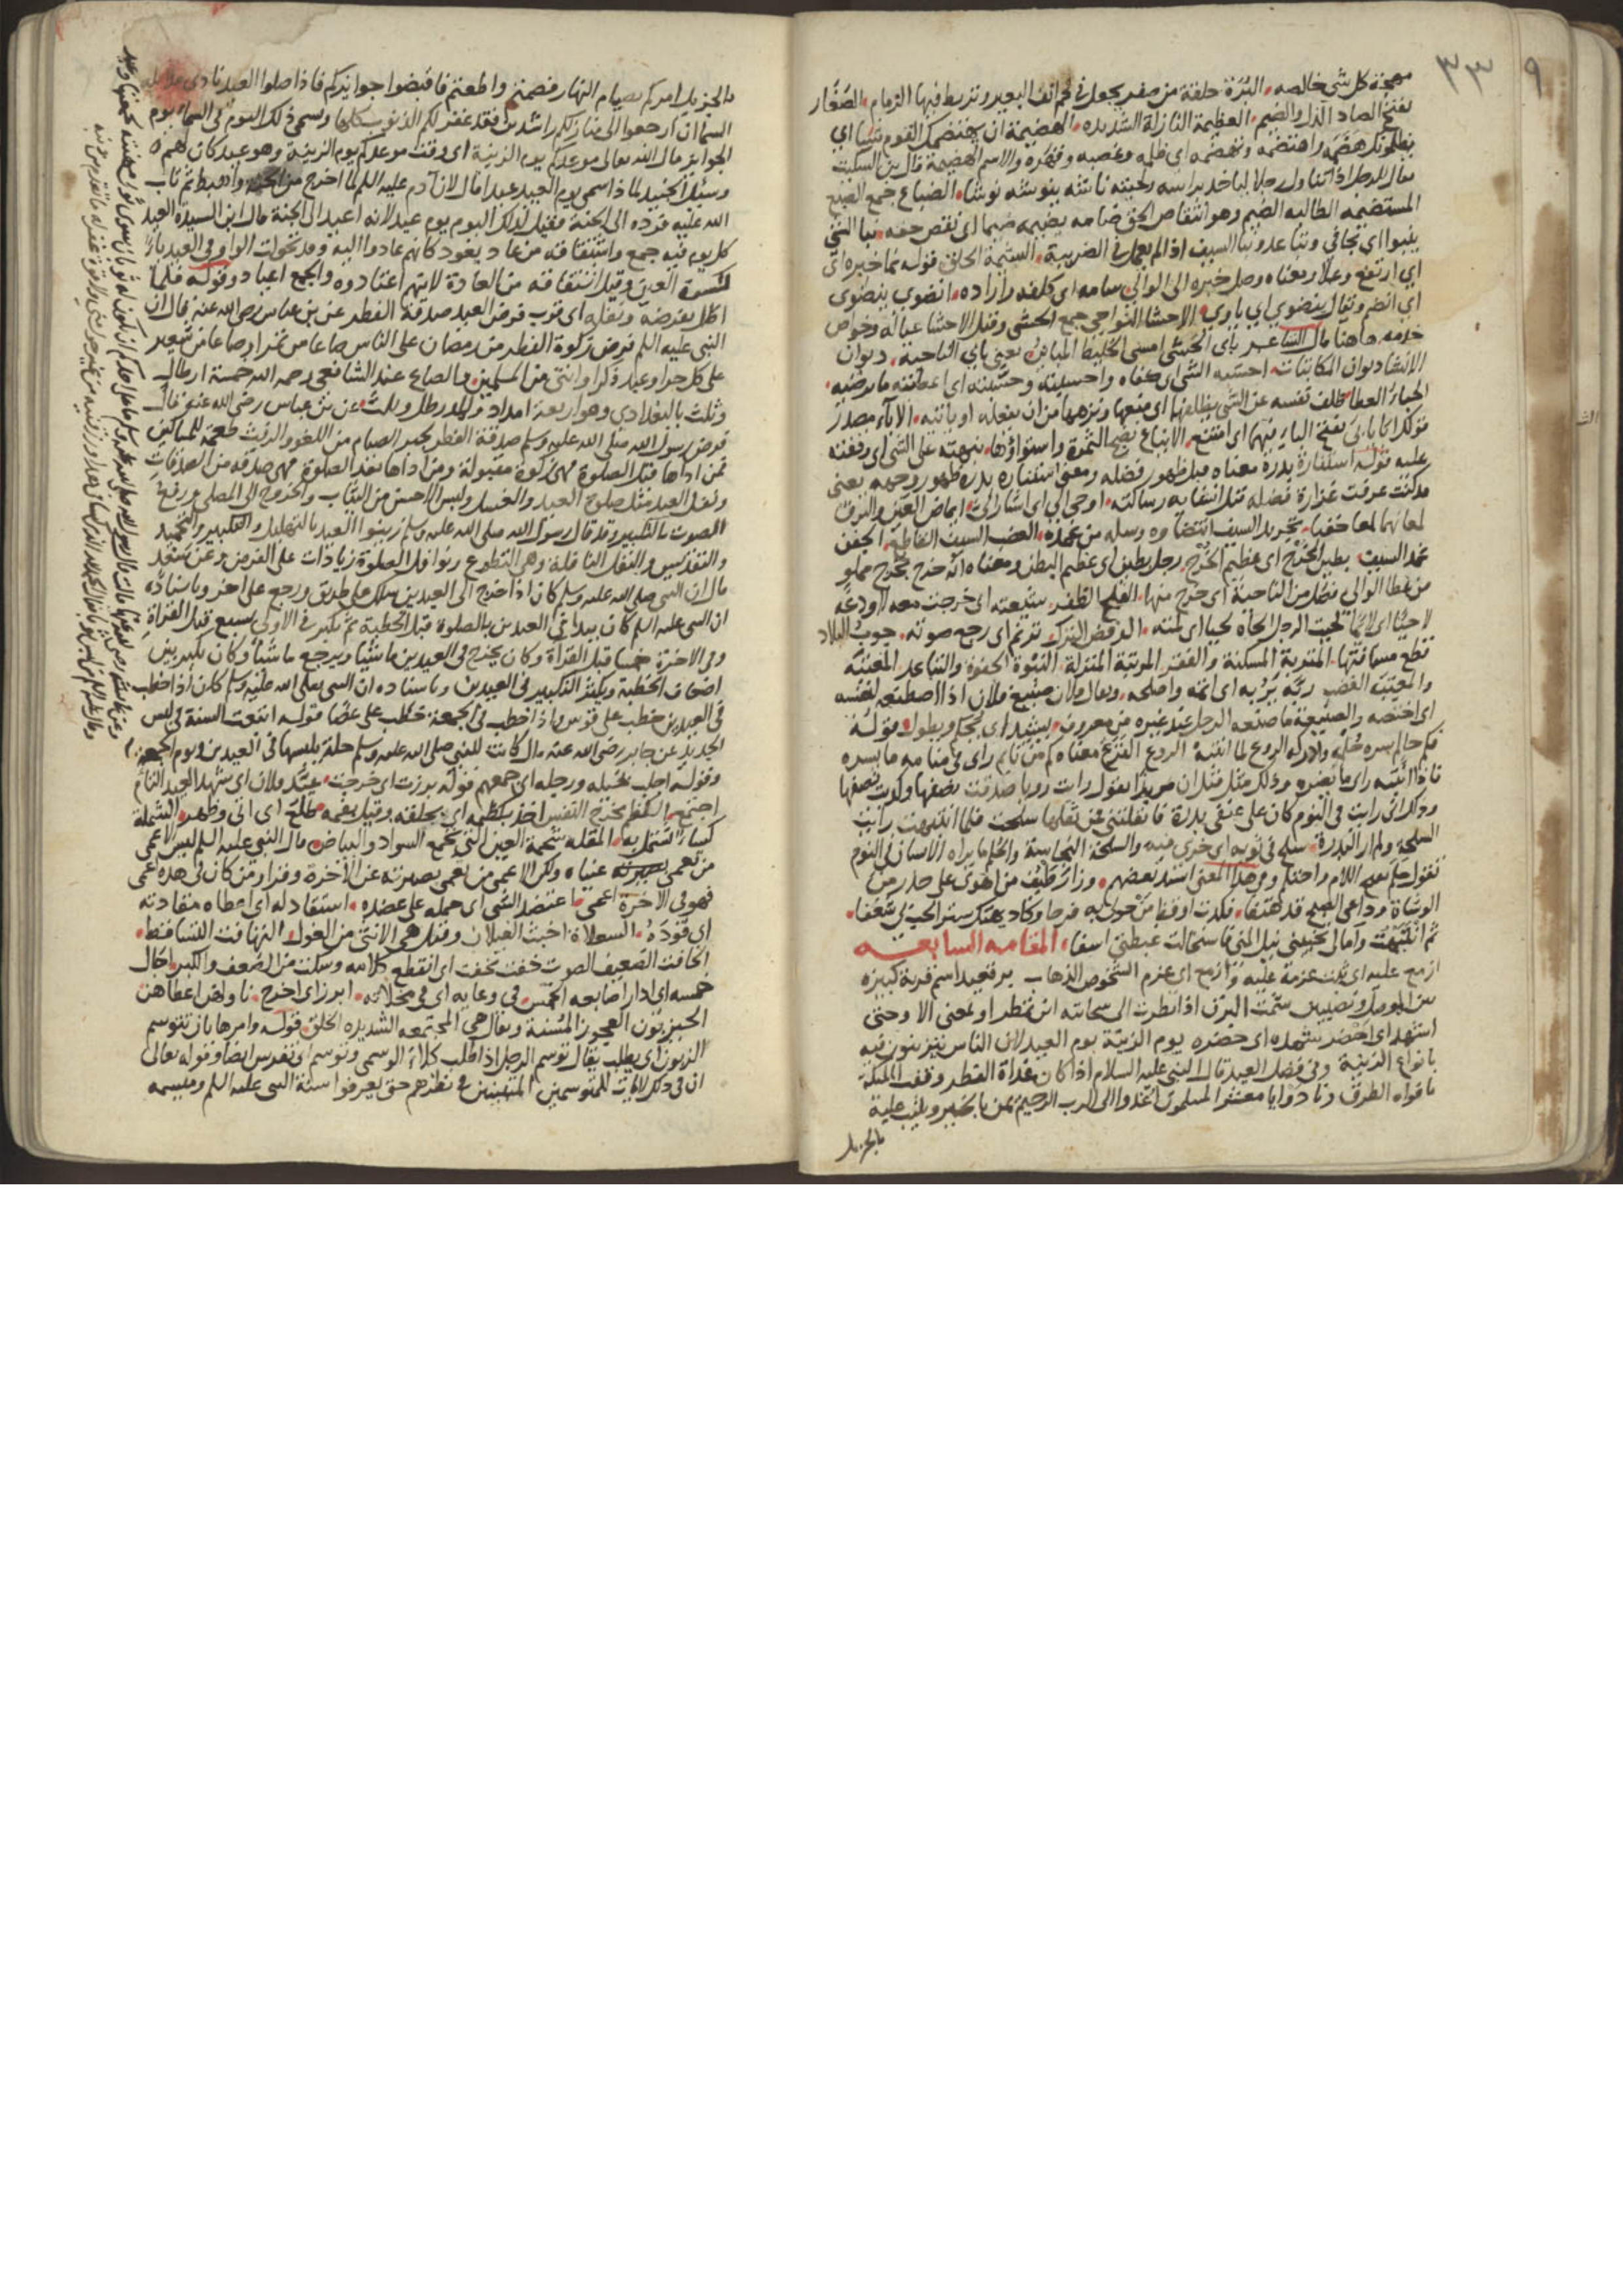 ٩ ٣٣
مهجة كل شي خالصه البُرَة حلقة من صفر يجعل في لحم انف البعير وتربط فيها الزمام الصَغَار
بفتح الصاد الذل والضيم العظيمة النازلة الشديده الهضيمة ان يهتضمك القوم شيا اي
يظلمونك هضمه واهتضمه وتهضمه اي ظلمه وغصبه وقهره والاسم الهضيمة قال بن السكيت
يقال للرجل اذا تناول رجلا لياخذ براسه ولحيته ناشه ينوشه نوشا الضباع جمع الضبع
المستضيمه الطالبه الضيم وهو انتقاص الحق ضامه يضيمه ضيما اي نقص حقه نبا الشي
ينبوا اي تجافي وتباعد ونبا السيف اذا لم يعمل في الضريبة الشيمة الخلق قوله نما خبره اي
اي ارتفع وعلا ومعناه وصل خبره الى الوالي سامه اي كلفه واراده انضوي ينضوي
اي انضم ويقال ينضوي اي ياوي الاحشا النواحي جمع الحشى وقيل الاحشا عياله وخواص
خدمه هاهنا قال الشاعر باي الحشى امسى الخليط المباين يعني باي الناحية ديوان
الانشا ديوان المكاتبات احسبه الشي اي كفاه واحسبته وحسّبته اي اعطيته ما يرضيه
الحباء العطا ظلف نفسه عن الشي يظلفها اي منعها ونزهها من ان يفعله او ياتيه الاباء مصدر
قولك ابا يابى بفتح الباء فيهما اي امتنع الايناع نضج الثمرة واستواؤها نبهته على الشي اي وقفته
عليه قوله استنارة بدره معناه قبل ظهور فضله ومعنى استناره بدره ظهور وجهه يعني
قد كنت عرفت غزارة فضله قبل انشايه رسالته اوحى الي اي اشار الي ايماض العين والبرق
لمعانهما لمعا خفيا تجريد السيف انتضاوه وسله من غمده العضب السيف القاطع الجفن
غمد السيف بطين الخرج اي عظيم الخرج رجل بطين اي عظيم البطن ومعناه انه خرج بخرج مملو
من عطا الوالي فصل من الناحية اي خرج منها الفلج الظفر شيعته اي خرجت معه لاودعه
لاحيا اي لايما لحيت الرجل الحاه لحيا اي لمته الرفض الترك ترنم اي رجع صوته جوب البلاد
قطع مسافتها المتربة المسكنة والفقر المرتبة المنزلة النبوة الجفوة والتباعد المعتبة
والمعتبَة الغضب ربّه يربه اي اتمه واصلحه ويقال فلان صنيع فلان اذا اصطنعه لنفسه
اي اختصه والصنيعة ما صنعه الرجل عند غيره من معروف يشيد اي يحكم ويطول وقوله
فكم حالم سره حُلمه وادركه الروع لما انتبه الروع الفزع معناه كم من نايم راى في منامه ما يسره
فاذا انتبه راى ما يضره وذلك مثل مثل ان مريدا يقول رات رويا صدقت نصفها وكذبت نصفها
وذلك اني رايت في النوم كان على عنقي بدرة فانقلتني من ثقلها سلحت فلما انتبهت رايت
السلحة ولم ار البدرة سلح في ثوبه اي خرى فيه والسلحة النجاسة والحلم ما يراه الانسان في النوم
تقول حلم بفتح اللام واحتلم وفي هذا المعنى انشد بعضهم وزائر طيف من اهوى على حذر من
الوشاة وداعي الصبح قد هتفا فكدت اوقظ من حولي به فرحا وكاد يهتك ستر الحب لي شغفا
ثم انتبهت وآمالي تخيبني نيل المنى فاستحالت غبطتي اسفا المقامه السابعه
ازمع عليه اي ثبت عزمه عليه وازمع اي عزم الشخوص الذهاب برقعيد اسم قرية كبيرة
بين الموصل ونصيبين شمت البرق اذا نظرت الى سحابته اين تمطر او بمعنى الا وحتى
اشهد اي احضر شهده اي حضره يوم الزينة يوم العيد لان الناس يتزينون فيه
بانواع الزينة وفي فضل العيد قال النبي عليه السلام اذا كان غداة الفطر وقفت الملائكة
بافواه الطرق ونادوا يا معشر المسلمين اغدوا الى الرب الرحيم يمن بالخير ويثيب عليه
بالجزيل
بالجزيل امركم بصيام النهار فصمتم واطعتم فاقبضوا جوايزكم فاذا صلوا العيد نادى مناد من
السما ان ارجعوا الى منازلكم راشدين فقد غفر لكم الذنوب كلها ويسمى ذلك اليوم في السماء يوم
الجوايز قال الله تعالى موعدكم يوم الزينة اي وقت موعدكم يوم الزينة وهو عيد كان لهم
وسيل الجنيد لما ذا سمي يوم العيد عيدا قال لان آدم عليه السلم لما اخرج من الجنة واهبط ثم تاب
الله عليه فرده الى الجنة فقيل لذلك اليوم يوم عيد لانه اعيد الى الجنة قال ابن السيد العيد
كل يوم فيه جمع واشتقاقه من عاد يعود كانهم عادوا اليه وقد تحولت الواو في العيد ياء
لكسرة العين وقيل اشتقاقه من العادة لانهم اعتادوه والجمع اعياد وقوله فلما
اظل بفرضه ونفله اي قرب فرض العيد صدقة الفطر عن بن عباس رضي الله عنه قال ان
النبي عليه السلم فرض زكوة الفطر من رمضان على الناس صاعا من تمر او صاعا من شعير
على كل حر او عبد ذكر او انثى من المسلمين والصاع عند الشافعي رحمه الله خمسة ارطال
وثلث بالبغدادي وهو اربعة امداد والمد رطل وثلث عن بن عباس رضي الله عنه قال
فرض رسول الله صلى الله عليه وسلم صدقة الفطر يجبر الصيام من اللغو والرفث طعمة للمساكين
فمن اداها قبل الصلوة فهي زكوة مقبولة ومن اداها بعد الصلوة فهي صدقة من الصدقات
ونفل العيد مثل صلوة العيد والغسل ولبس الاحسن من الثياب والخروج الى المصلى ورفع
الصوت بالتكبير وقد قال رسول الله صلى الله عليه وسلم زينوا العيد بالتهليل والتكبير والتحميد
والتقديس والنفل النافلة وهي التطوع ونوافل الصلوة زيادات على الفرض وعن سعد
قال ان النبي صلى الله عليه وسلم كان اذا خرج الى العيدين سلك على طريق ورجع على اخر وباسناده
ان النبي عليه السلم كان يبدا في العيدين بالصلوة قبل الخطبة ثم يكبر في الاولى سبع قبل القراءة
وفي الاخرة خمسا قبل القراة وكان يخرج في العيدين ماشيا ويرجع ماشيا وكان يكبر بين
اضعاف الخطبة ويكثر التكبير في العيدين وباسناده ان النبي صلى الله عليه وسلم كان اذا خطب
في العيدين خطب على قوس واذا خطب في الجمعة خطب على عصا قوله اتبعت السنة في لبس
الجديد عن جابر رضي الله عنه قال كانت للنبي صلى الله عليه وسلم حلة يلبسها في العيدين ويوم الجمعة
وقوله اجلب بخيله ورجله اي جمعهم قوله برزت اي خرجت عيّد فلان اي شهد العيد التام
اجتمع الكظم مخرج النفس اخذ بكظمه اي بحلقه وقيل بفمه طلع اي اتى وظهر الشملة
كساء تشتمل به المقله شحمة العين التي تجمع السواد والبياض قال النبي عليه السلم ليس الاعمى
من تعمى عيناه ولكن الاعمى من تعمى بصيرته عن الآخرة وفرار ومن كان في هذه اعمى
فهو في الآخرة اعمى اعتضد الشي اي حمله على عضده استقاد له اي اعطاه مقادته
اي قوده السعلاة اخبث الغيلان وقيل هي الانثى من الغول التهافت التساقط
الخافت الضعيف الصوت خفت يخفت اي انقطع كلامه وسكت من الضعف والكبر اجال
خمسه اي ادار اصابعه الخمس في وعايه اي في مخلاته ابرز اي اخرج ناولهن اعطاهن
الحيزبون العجوز المسنة ويقال هي المجتمعه الشديده الخلق قوله وامرها بان تتوسم
الزبون اي يطلب يقال توسم الرجل اذا طلب كلاء الوسمي وتوسم اي تفرس ايضا وقوله تعالى
ان في ذلك لايات للمتوسمين المتثبتين في نظرهم حتى يعرفوا سنة النبي عليه السلم وميسمه